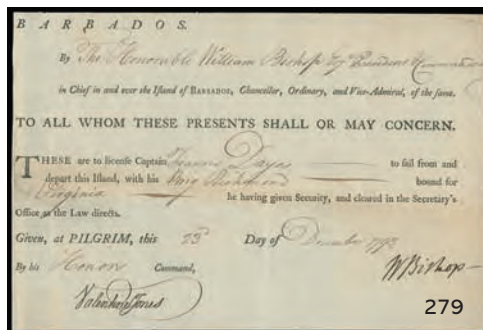 BARBADOS.
By The Honorable William Bishop Esqr. President & Commander
in Chief in and over the Island of BARBADOS, Chancellor, Ordinary, and Vice-Admiral, of the same.
TO ALL WHOM THESE PRESENTS SHALL OR MAY CONCERN.
THESE are to license Captain Francis Dayes to sail from and
depart this Island, with his Brig Richmond bound for
Virginia he having given Security, and cleared in the Secretary's
Office as the Law directs.
Given, at PILGRIM, this 23d Day of December 1793
By his Honors Command,
WBishop
Valentine Jones
279